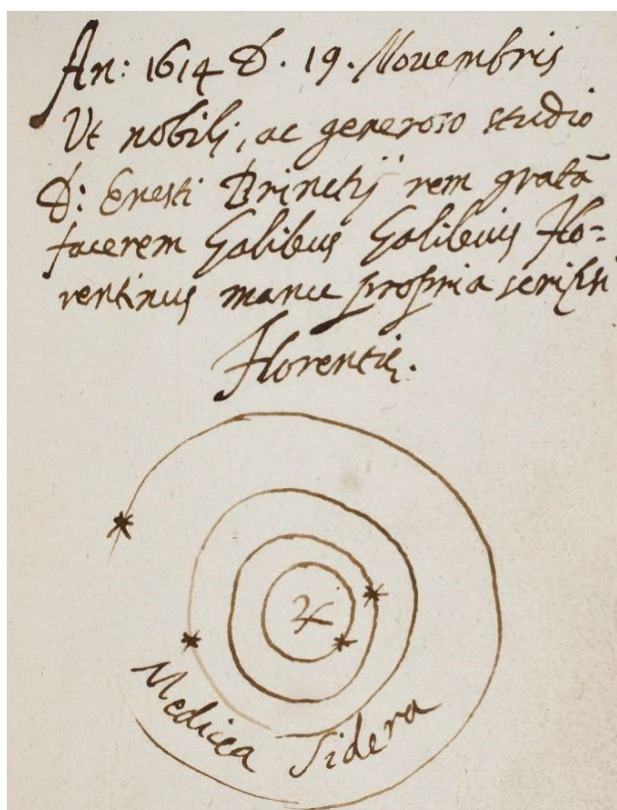 An: 1614 D. 19. Nouembris
Ut nobili, ac generoso studio
D: Enesti Brinctij rem gratã
facerem Galileus Galileius Flo=
rentinus manu propria scripsi
Florentię.
♃
Medicea Sidera